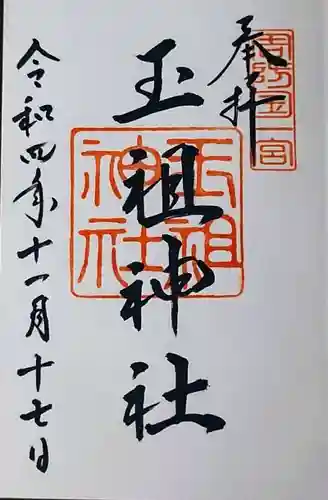 奉拝
周防国一宮
玉祖神社
玉祖神社
令和四年十一月十七日